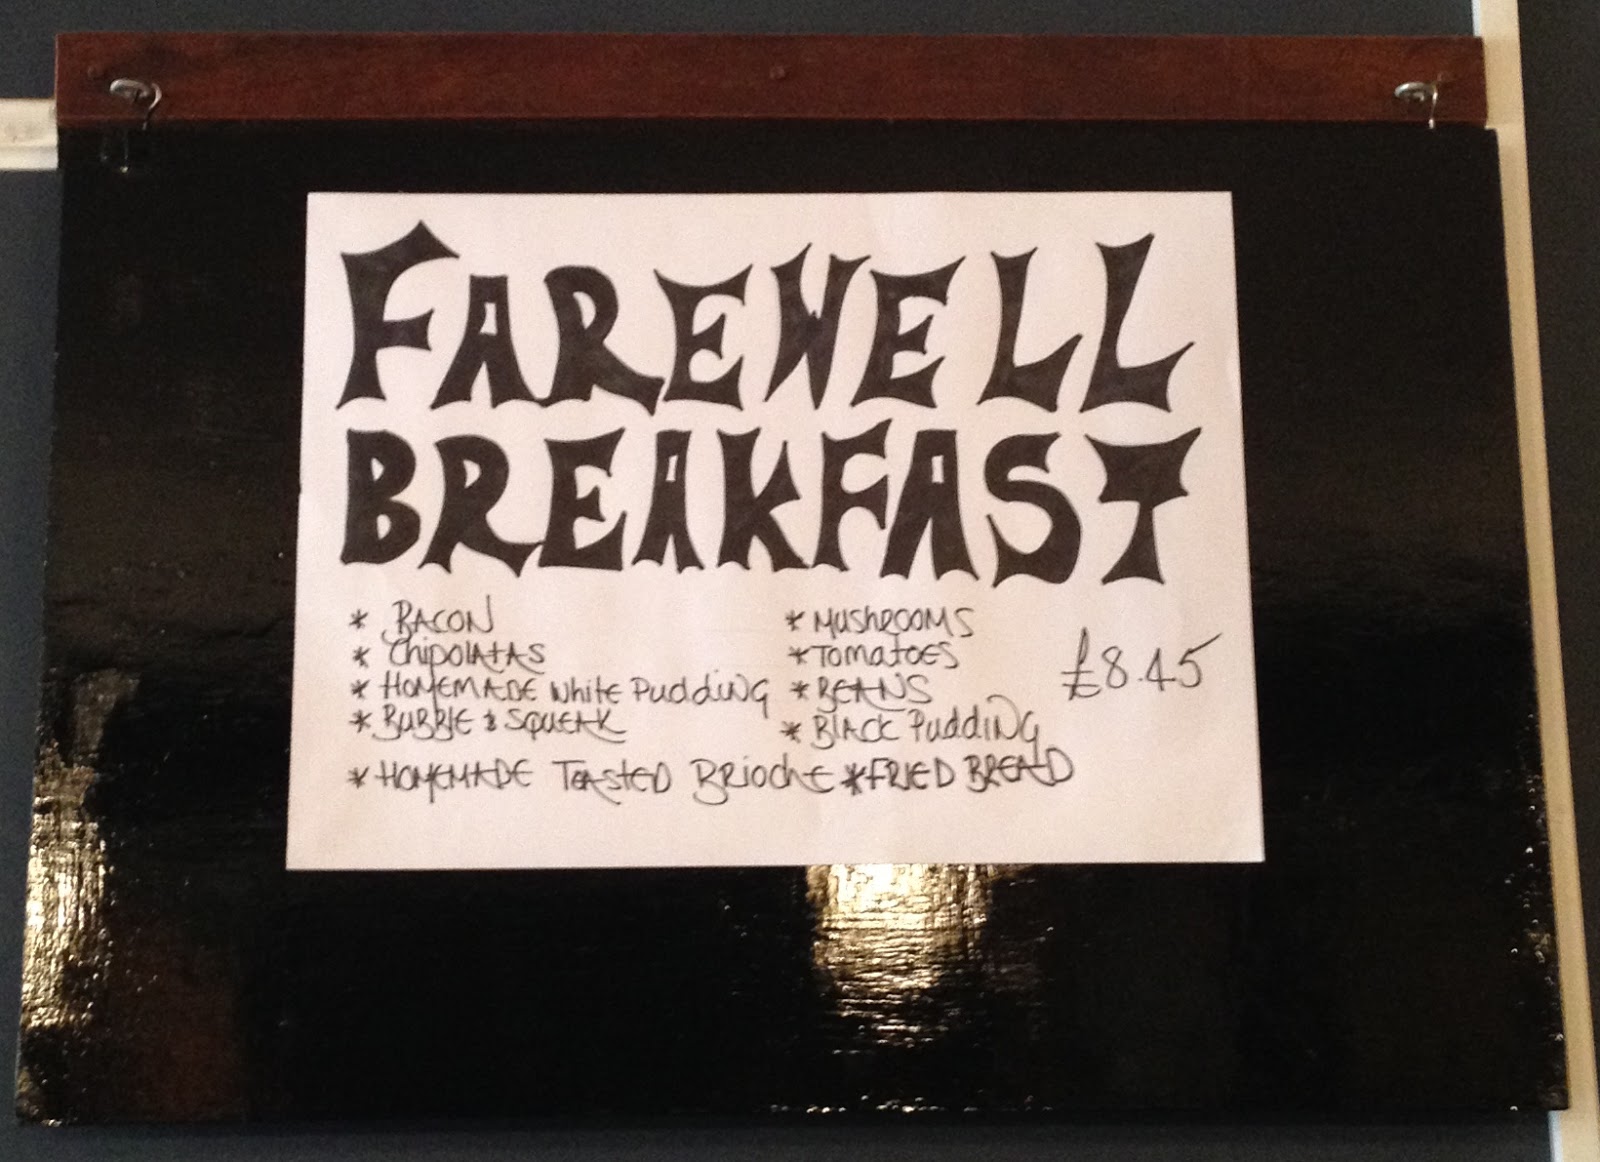 FAREWELL
BREAKFAST
* BACON
* Chipolatas
* HOMEMADE White Pudding
* BUBBLE & SQUEAK
* MUSHROOMS
* TOMATOES
* BEANS
* BLACK Pudding
£8.45
* HOMEMADE TOASTED BRIOCHE * FRIED BREAD